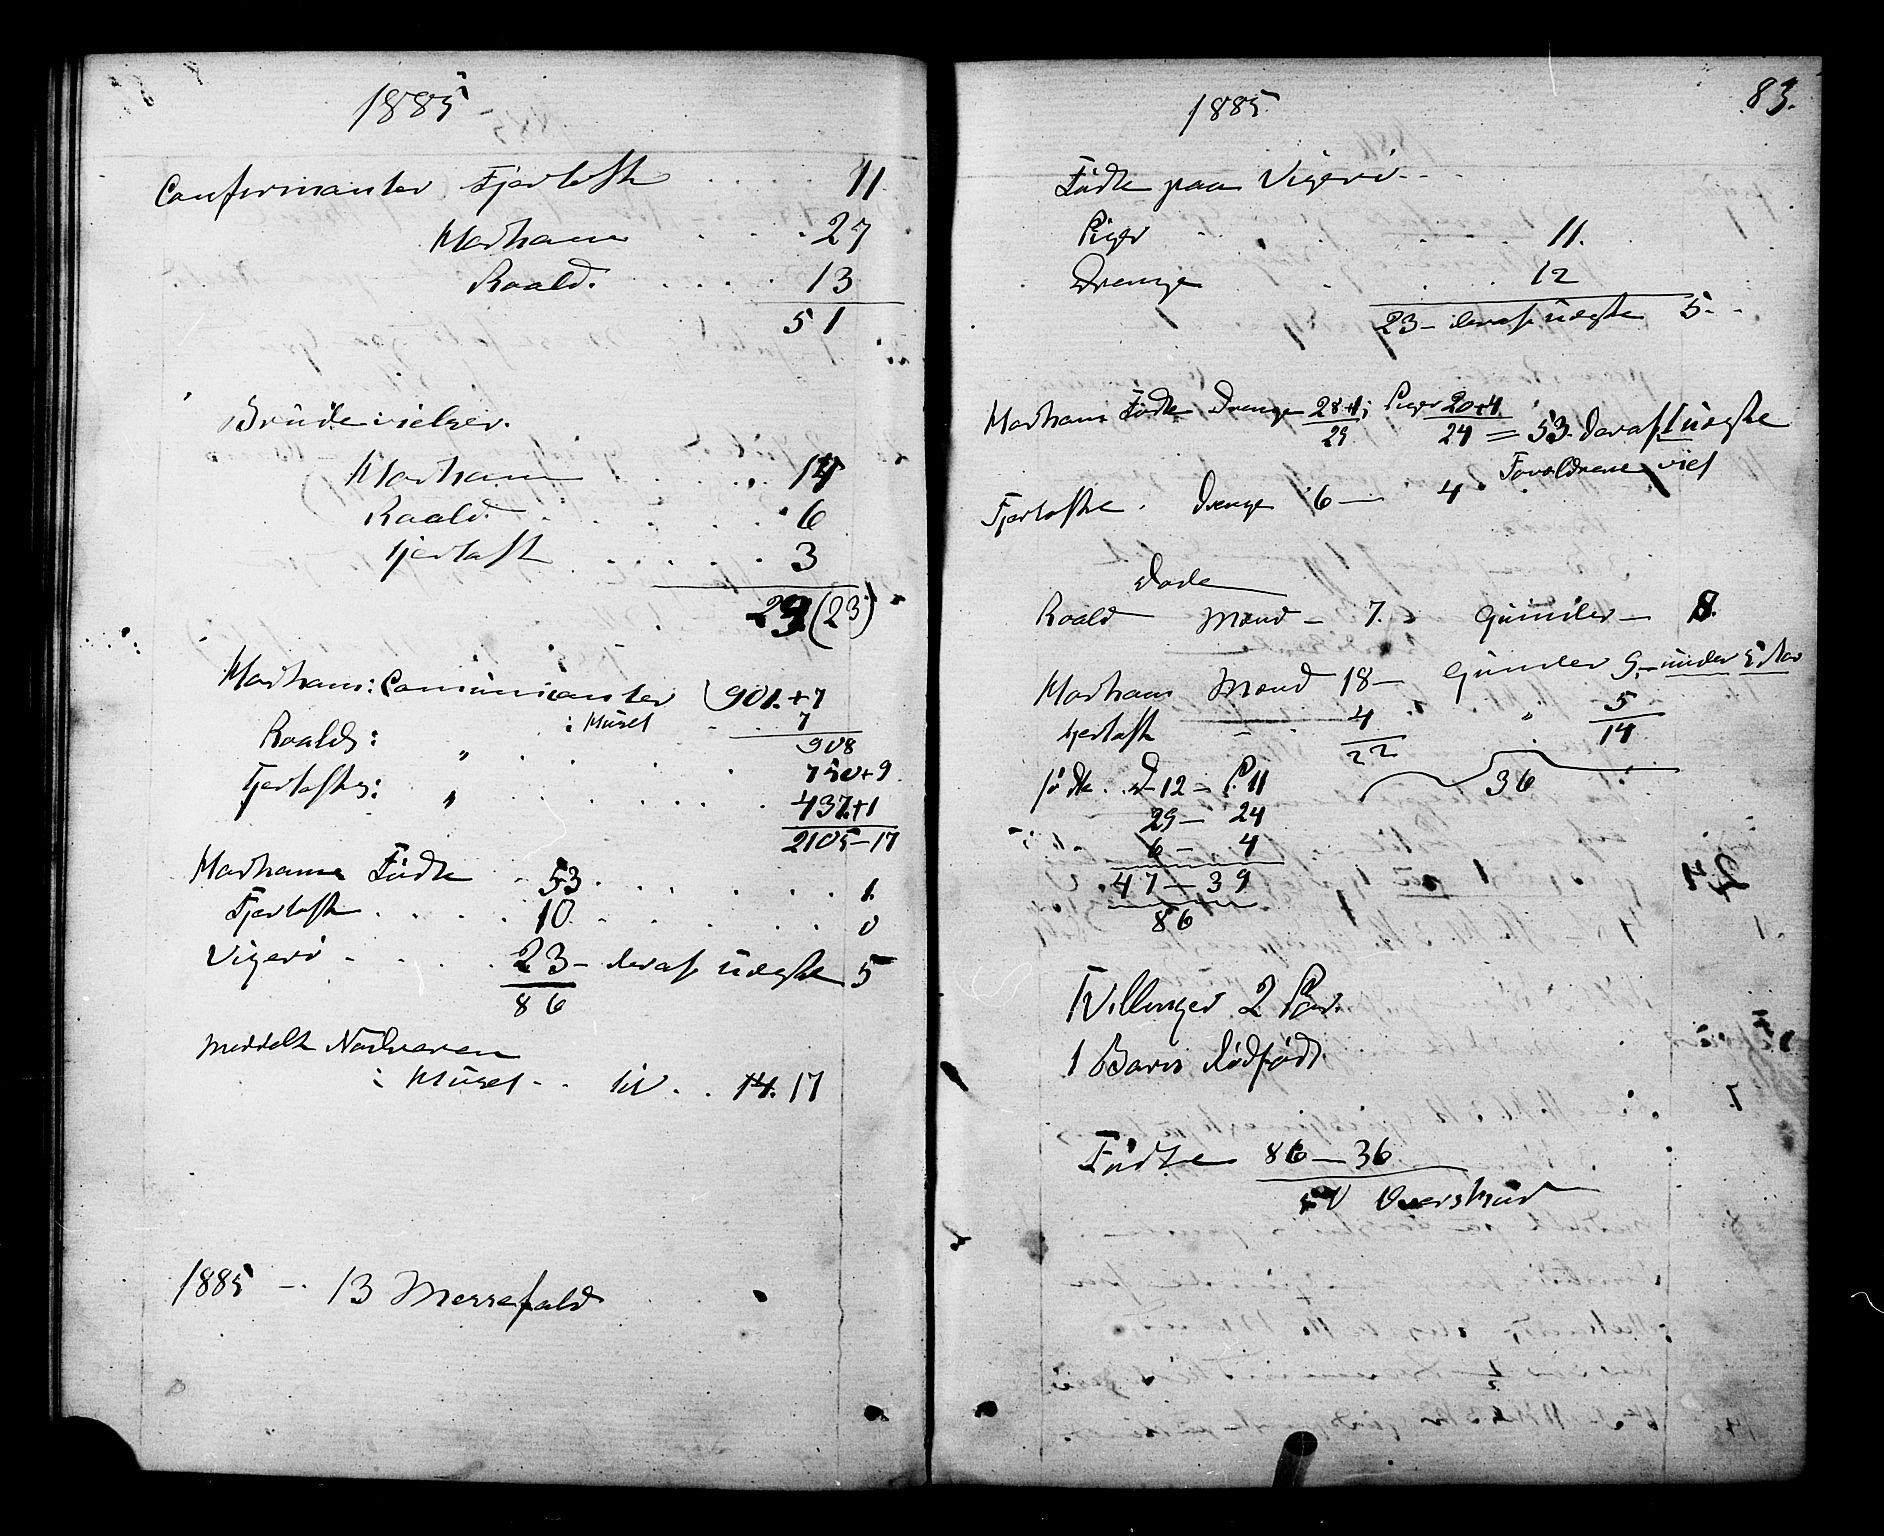 1885
Confirmanter Fjertoft 11
Harham 27
Roald. 13
51
Brudevielser.
Harham 14
Roald 6
Fjertoft 3
23 (23)
Harhams: Communicanter 901.+7
i Huset 7
908
Roalds: " 750+9
Fjertofts: " 437.+1
2105-17
Harhams Födte 53 1.
Fjertoft 10 0
Vigerö 23- deraf uægte 5
86
Meddelt Nadveren
i Huset til 14. 17
1885 - 13 Messefald
83.
1885
Födte paa Vigerö
Piger 11.
Drenge 12
23- deraf uægte 5
Harhams Födte Drenge 28+1; Piger 20+4
29 24 = 53. deraf 1 uægte
Forældrene viet
Fjertofte. Drenge 6 — 4
Döde
Roald Mænd - 7. Qvinder - 8.
Harhams Mænd 18 - Qvinder 9 - under 5 Aar
Fjertoft 4 " 5
22 14
36
födte. D-12 - P. 11
29 - 24
6 - 4
47 - 39
86
Tvillinger 2 Par.
1 Barn dödfödt.
Födte 86-36
50 Overskud